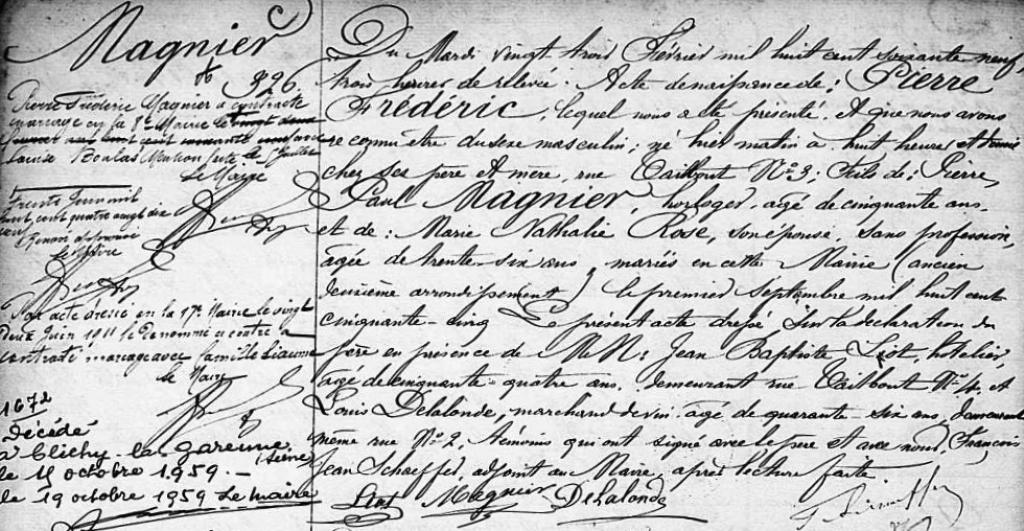 Magnier
№ 326
Pierre Frédéric Magnier a contracté
mariage en la 8e Mairie le vingt deux
Louise
Le Maire
Trente
huit cent quatre vingt dix
Le Maire
Par acte dressé en la 17e Mairie le vingt
deux Juin 1911 le dénommé a contre
contracté mariage avec Camille Liaume
le Maire
1672
Décédé
à Clichy-la-Garenne
(Seine)
le 15 octobre 1959.-
le 19 octobre 1959 Le Maire
Du Mardi vingt trois Février mil huit cent soixante neuf,
trois heures de relevée. Acte de naissance de : Pierre
Frédéric, lequel nous a été présenté, et que nous avons
reconnu être du sexe masculin ; né hier matin à huit heures et demie
chez ses père et mère, rue Taitbout No 3 ; Fils de : Pierre
Paul Magnier, horloger, agé de cinquante ans,
et de : Marie Nathalie Rose, son épouse, sans profession,
agée de trente-six ans, mariés en cette Mairie (ancien
deuxième arrondissement) le premier Septembre mil huit cent
cinquante-cinq. Le présent acte dressé sur la déclaration du
père en présence de MM : Jean Baptiste Liot, hôtelier,
agé de cinquante-quatre ans, demeurant rue Taitbout No 4, et
Louis Delalonde, marchand de vin, agé de quarante six ans, demeurant
même rue No 2, témoins qui ont signé avec le père et avec nous, François
Jean Schaeffer, adjoint au Maire, après lecture faite
Liot Magnier Delalonde